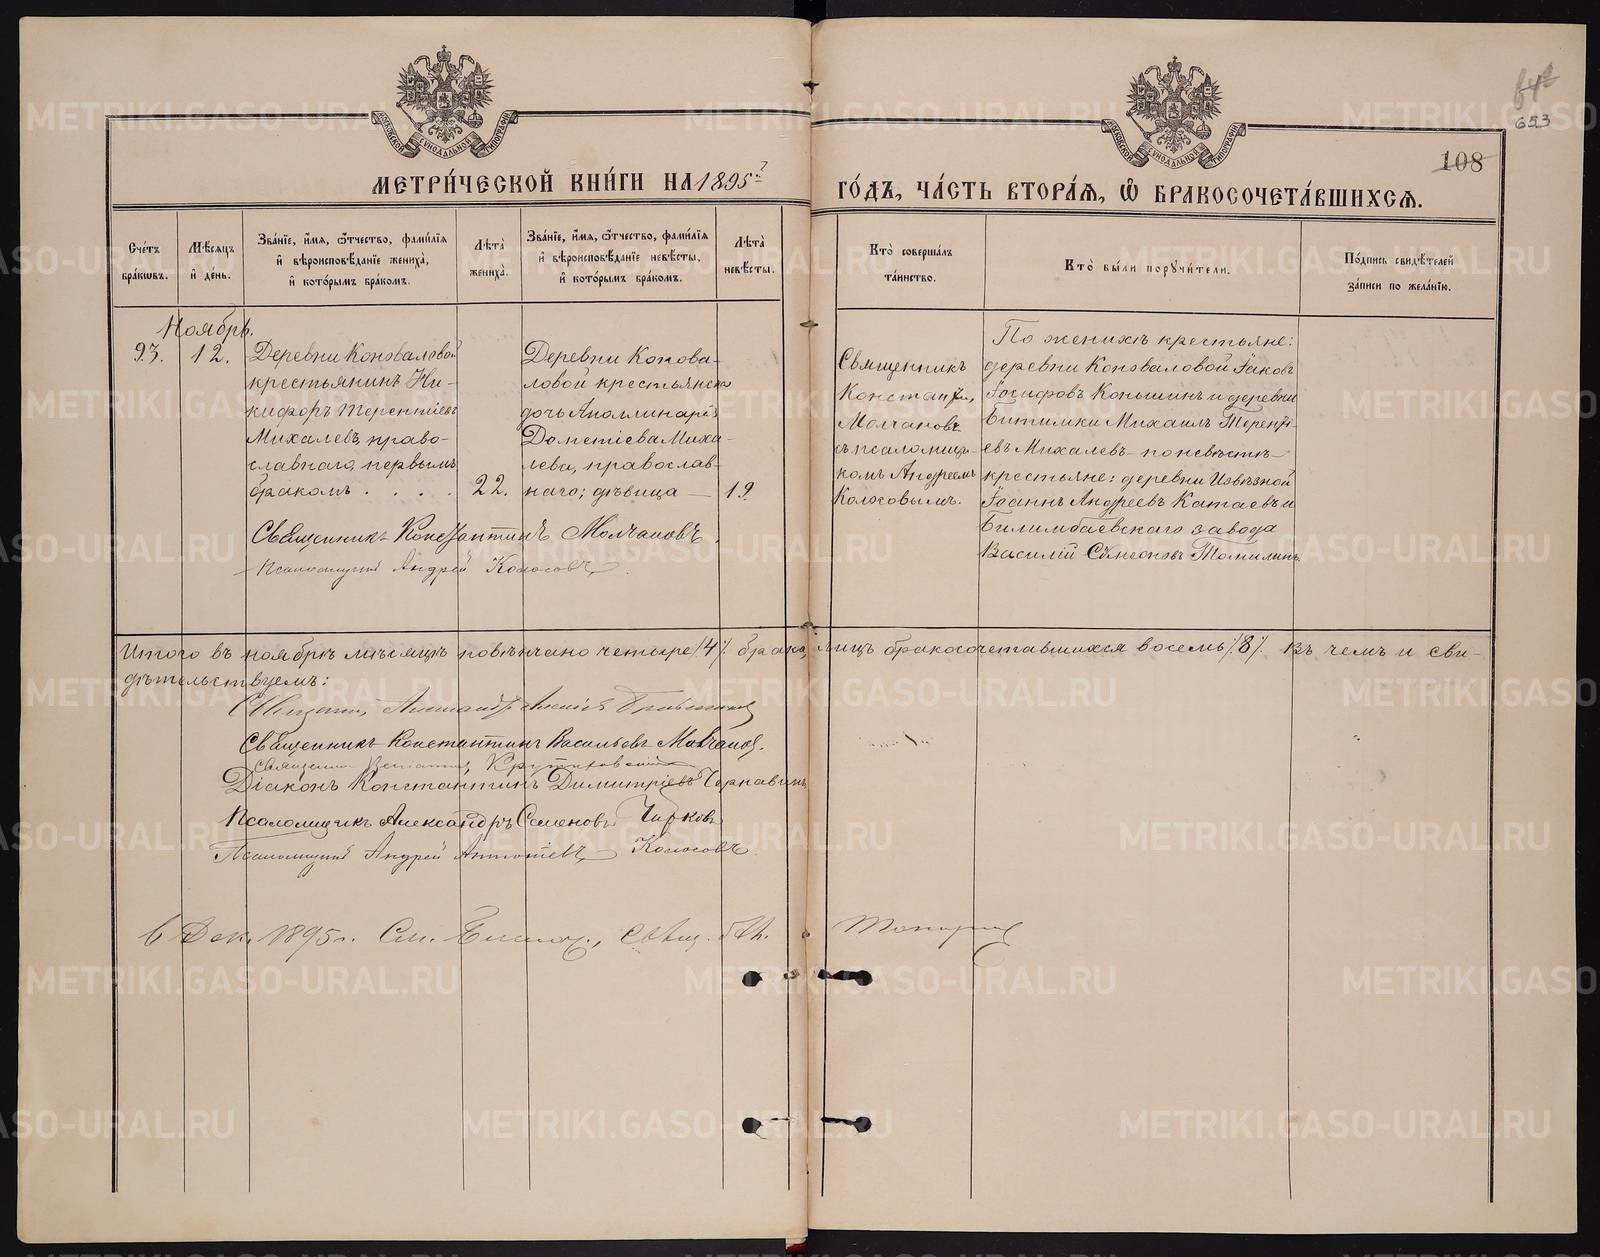 643
653
108
МОСКОВСКОЙ СѴНОДАЛЬНОЙ ТИПОГРАФІИ
МОСКОВСКОЙ СѴНОДАЛЬНОЙ ТИПОГРАФІИ
МЕТРИ́ЧЕСКОЙ КНИ́ГИ НА 1895й ГО́ДЪ, ЧА́СТЬ ВТОРА́Я, Ѽ БРАКОСОЧЕТА́ВШИХСЯ.
Сче́тъ бра́кѡвъ.
Мѣ́сяцъ и҆ де́нь.
Зва́нїе, и҆́мя, ѻ҆́тчество, фами́лїя и҆ вѣроисповѣ́данїе жениха̀, и҆ кото́рымъ бра́комъ.
Лѣта̀ жениха̀.
Зва́нїе, и҆́мя, ѻ҆́тчество, фами́лїя и҆ вѣроисповѣ́данїе невѣ́сты, и҆ кото́рымъ бра́комъ.
Лѣта̀ невѣ́сты.
Кто̀ соверша́лъ та́инство.
Кто̀ бы́ли порꙋчи́тели.
По́дпись свидѣ́телей за́писи по жела́нїю.
Ноябрь.
93.
12.
Деревни Коноваловой
крестьянинъ Ни-
кифоръ Терентіевъ
Михалевъ, право-
славнаго, первымъ
бракомъ . . . .
22.
Деревни Конова-
ловой крестьянска
дочь Аполлинарія
Дометіева Миха-
лева, православ-
наго; дѣвица —
19.
Священникъ
Константин,
Молчановъ
съ псаломщи-
комъ Андреемъ
Колосовымъ.
По женихѣ крестьяне:
деревни Коноваловой Іаковъ
Іосифовъ Коньшинъ и деревни
Битимки Михаилъ Терентi-
евъ Михалевъ – по невѣстѣ –
крестьяне: деревни Извѣзной
Іоаннъ Андреевъ Катаевъ и
Билимбаевскаго завода
Василій Сѵмеоновъ Томилинъ.
Священникъ Константинъ Молчановъ.
Псаломщикъ Андрей Колосовъ.
Итого въ ноябрѣ мѣсяцѣ повѣнчано четыре /4/. брака, лицъ бракосочетавшихся восемь /8/. Въ чемъ и сви-
дѣтельствуемъ:
Священникъ Константинъ Васильевъ Молчановъ.
Діаконъ Константинъ Димитріевъ Чернавинъ
Псаломщикъ Александръ Семеновъ Чирковъ
Псаломщикъ Андрей Колосовъ
6 Дек. 1895 г.
METRIKI.GASO-URAL.RU